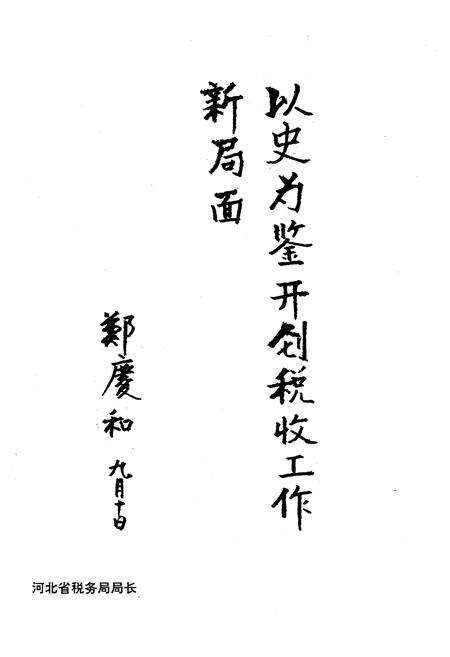 以史为鉴开创税收工作
新局面
鄭慶和
九月十日
河北省税务局局长